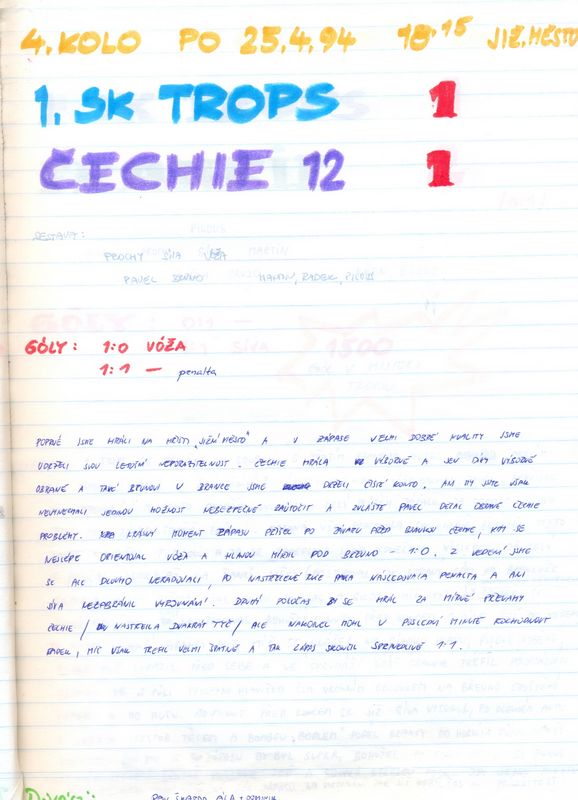 4. KOLO PO 25.4.94 18.15 JIŽ. MĚSTO
1. SK TROPS 1
ČECHIE 12 1
SESTAVA:
PROCHY SÍVA VÓŽA
PAVEL BRUNO MARTIN, RADEK, PILOUS
GÓLY: 1:0 VÓŽA
1:1 — penalta
POPRVÉ JSME HRÁLI NA HŘIŠTI "JIŽNÍ MĚSTO" A V ZÁPASE VELMI DOBRÉ KVALITY JSME
UDRŽELI SVOU LETOŠNÍ NEPORAZITELNOST. ČECHIE HRÁLA VÝBORNĚ A JEN DÍKY VÝBORNÉ
OBRANĚ A TAKÉ BRUNOVI V BRANCE JSME DRŽELI ČISTÉ KONTO. ANI MY JSME VŠAK
NEVYNECHALI JEDINOU MOŽNOST NEBEZPEČNĚ ZAÚTOČIT A ZVLÁŠTĚ PAVEL DĚLAL OBRANĚ ČECHIE
PROBLÉMY. KRÁSNÝ MOMENT ZÁPASU PŘIŠEL PO ZÁVARU PŘED BRANKOU ČECHIE, KDY SE
NEJLÉPE ORIENTOVAL VÓŽA A HLAVOU MÍŘIL POD BŘEVNO - 1:0. Z VEDENÍ JSME
SE ALE DLOUHO NERADOVALI, PO NASTŘELENÉ RUCE NÁSLEDOVALA PENALTA A ANI
SÍVA NEZABRÁNIL VYROVNÁNÍ. DRUHÝ POLOČAS BY SE HRÁL ZA MÍRNÉ PŘEVAHY
ČECHIE / NASTŘELILA DVAKRÁT TYČ / ALE NAKONEC MOHL V POSLEDNÍ MINUTĚ ROZHODNOUT
RADEK, MÍČ VŠAK TREFIL VELMI ŠPATNĚ A TAK ZÁPAS SKONČIL SPRAVEDLIVĚ 1:1.